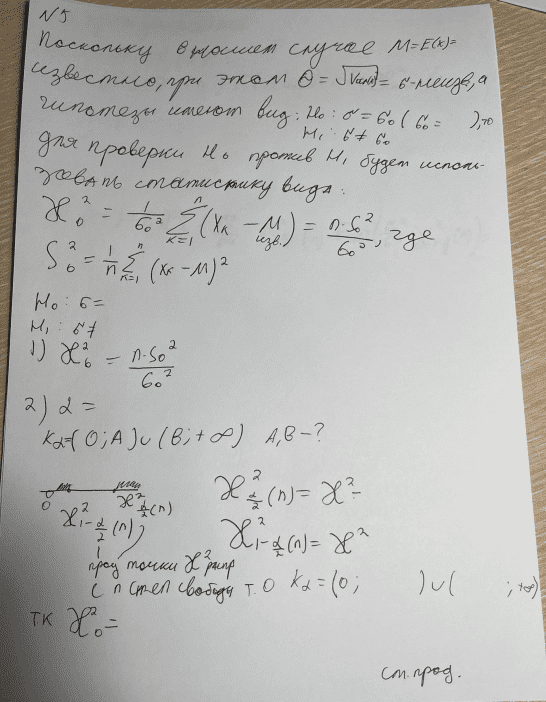 N5
Поскольку в нашем случае M=E(x)=
известно, при этом θ = √Var(x) = σ - неизв, а
гипотезы имеют вид: H₀: σ = σ₀ (σ₀ =      ), то
H₁: σ ≠ σ₀
для проверки H₀ против H₁ будет исполь-
зовать статистику вида:
χ₀² = 1/σ₀² Σₖ₌₁ⁿ (Xₖ - M) = n·S₀²/σ₀², где
изв.
S₀² = 1/n Σₖ₌₁ⁿ (Xₖ - M)²
H₀: σ =
H₁: σ ≠
1) χ₀² = n·S₀²/σ₀²
2) α =
Kα = (0; A) ∪ (B; +∞)   A, B - ?
0   χ²_{1-α/2}(n)   χ²_{α/2}(n)
χ²_{α/2}(n) = χ² -
χ²_{1-α/2}(n) = χ²
проц точки χ² распр
с n степ свобода т. о Kα = (0;      ) ∪ (      ; +∞)
тк χ₀² =
см. прод.